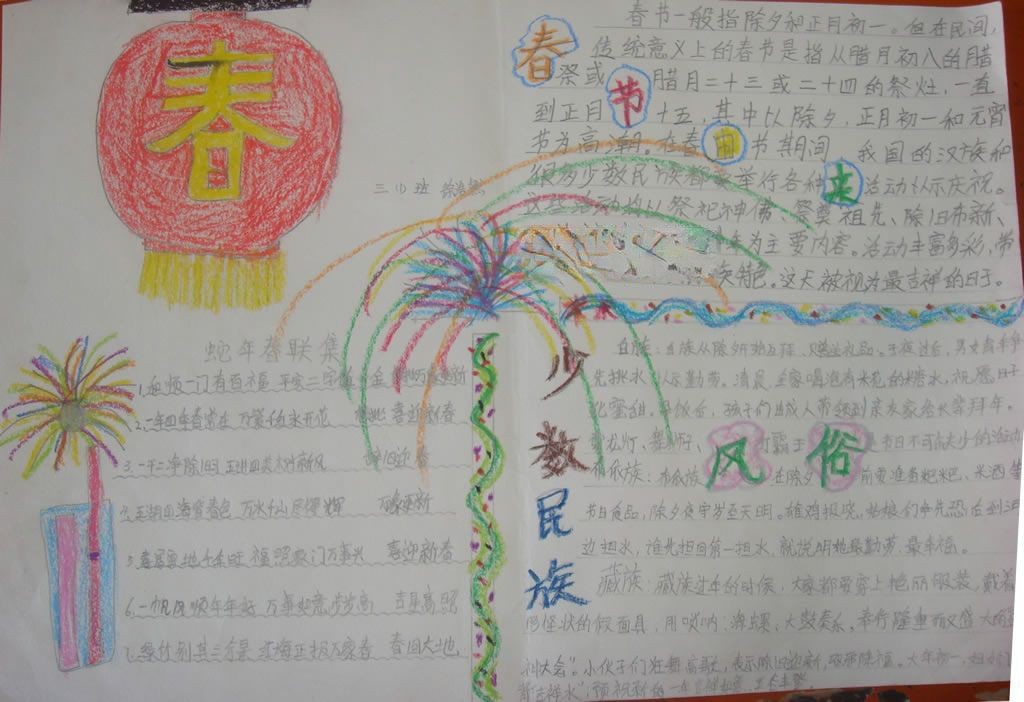 春
三(1)班
春节由来
春节一般指除夕和正月初一。但在民间,
传统意义上的春节是指从腊月初八的腊
祭或腊月二十三或二十四的祭灶,一直
到正月十五,其中以除夕,正月初一和元宵
节为高潮。在春节期间,我国的汉族和
很多少数民族都要举行各种活动以示庆祝。
这些活动均以祭祀神佛、祭奠祖先、除旧布新、
为主要内容。活动丰富多彩,带
特色。这天被视为最吉祥的日子。
蛇年春联集
1、一门有百福 平安二字
2、一年四季春常在 万紫千红永开花 喜迎新春
3、一干二净除旧 新风
五湖四海皆春色 万水千山尽得辉 万象更新
喜居宝地千年旺 福照家门万事兴 喜迎新春
6、一帆风顺年年好 万事如意步步高 吉星高照
春回大地
少数民族风俗
白族:白族从除夕开始互拜、赠送礼品。子夜过后,男女青年争
先挑水,以示勤劳。清晨,全家喝泡有米花的糖水,祝愿日子
比蜜甜。早饭后,孩子们由成人带领到亲友家给长辈拜年。
龙灯、节日不可缺少的活动
布依族:布依族在除夕前要准备粑粑、米酒等
节日食品,除夕夜守岁至天明。雄鸡报晓,姑娘们争先恐后到河
边担水,谁先担回第一担水,就说明她最勤劳、最幸福。
藏族:藏族过年的时候,大家都要穿上艳丽服装,戴着
形怪状的假面具,用唢呐、海螺、大鼓奏乐,举行隆重而又盛大的
神大会”。小伙子们狂舞高歌,表示除旧迎新,驱邪降福。大年初一,妇女们
背吉祥水”,预祝新的一年吉祥如意